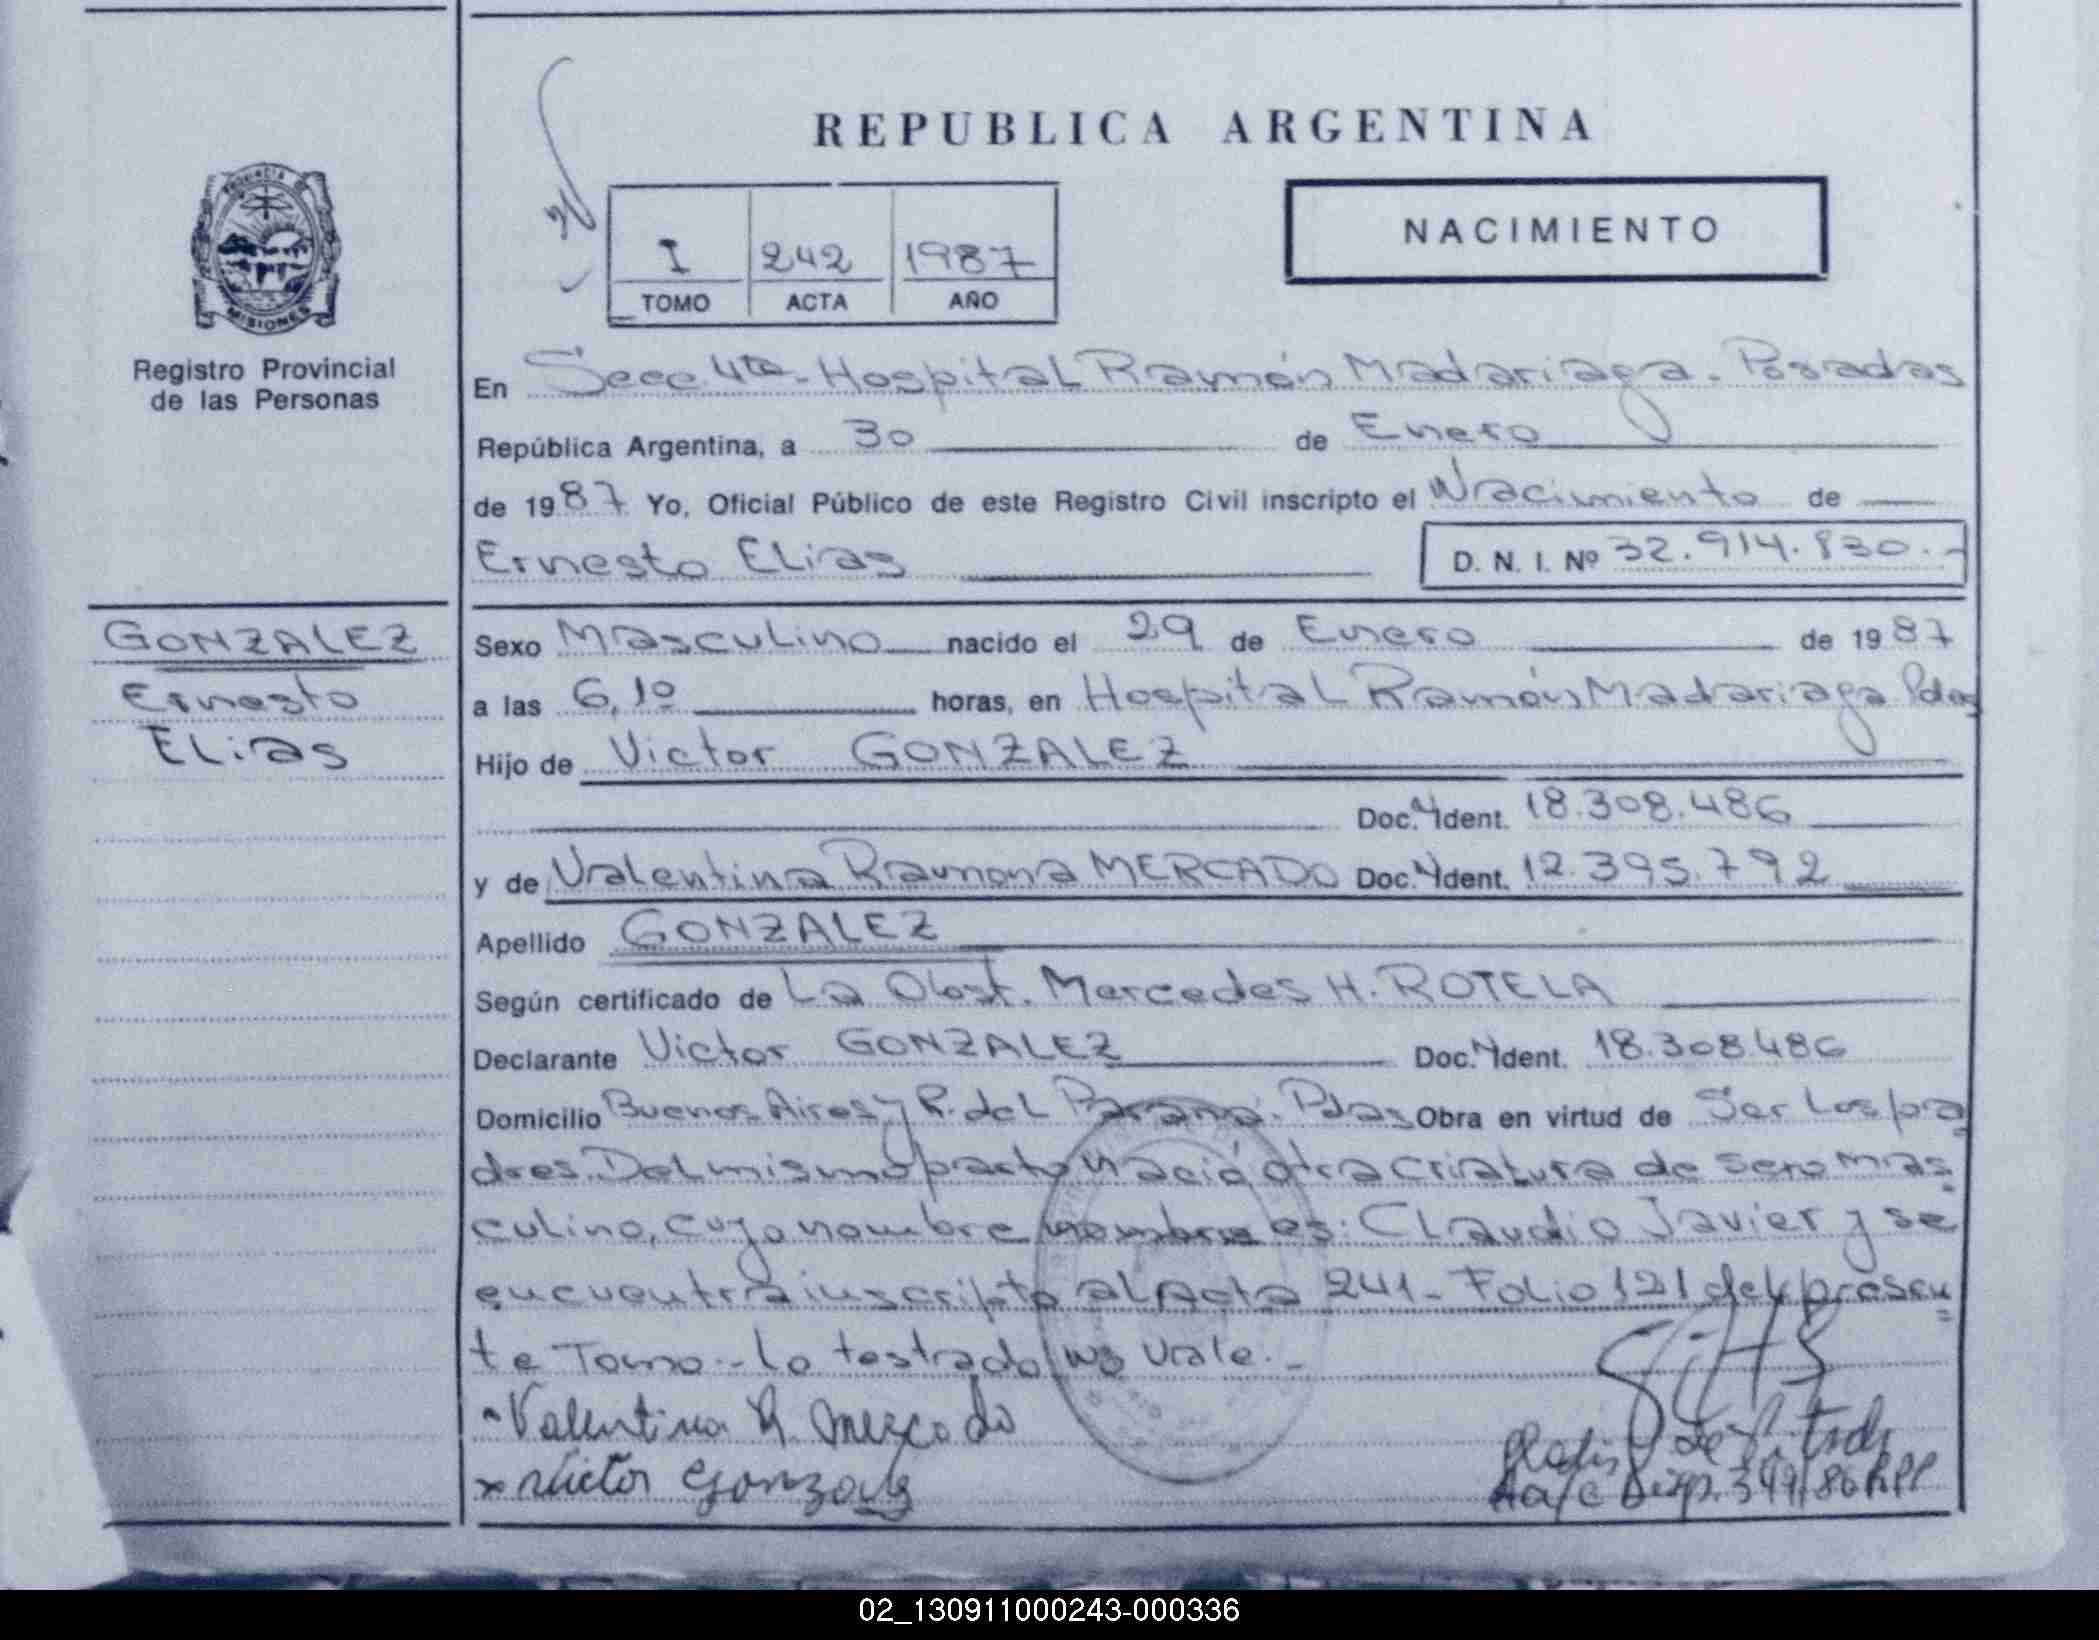 REPUBLICA ARGENTINA
NACIMIENTO
I 242 1987
TOMO ACTA AÑO
MISIONES
Registro Provincial
de las Personas
En Secc. 4ta - Hospital Ramón Madariaga. Posadas
República Argentina, a 30 de Enero
de 1987 Yo, Oficial Público de este Registro Civil inscripto el Nacimiento de
Ernesto Elias D. N. I. Nº 32.914.830.-
GONZALEZ
Ernesto
Elias
Sexo Masculino nacido el 29 de Enero de 1987
a las 6,10 horas, en Hospital Ramón Madariaga Pdas
Hijo de Victor GONZALEZ
Doc. Ident. 18.308.486
y de Valentina Ramona MERCADO Doc. Ident. 12.395.792
Apellido GONZALEZ
Según certificado de La Obst. Mercedes H. ROTELA
Declarante Victor GONZALEZ Doc. Ident. 18.308.486
Domicilio Buenos Aires y R. del Paraná. Pdas Obra en virtud de Ser los pa
dres. Del mismo parto nació otra criatura de sexo mas
culino, cuyo nombre nombre es: Claudio Javier y se
encuentra inscripto al Acta 241 - Folio 121 del presen
te Tomo.- Lo testado no vale.-
Valentina R. Mercado
x Victor Gonzalez
02_130911000243-000336